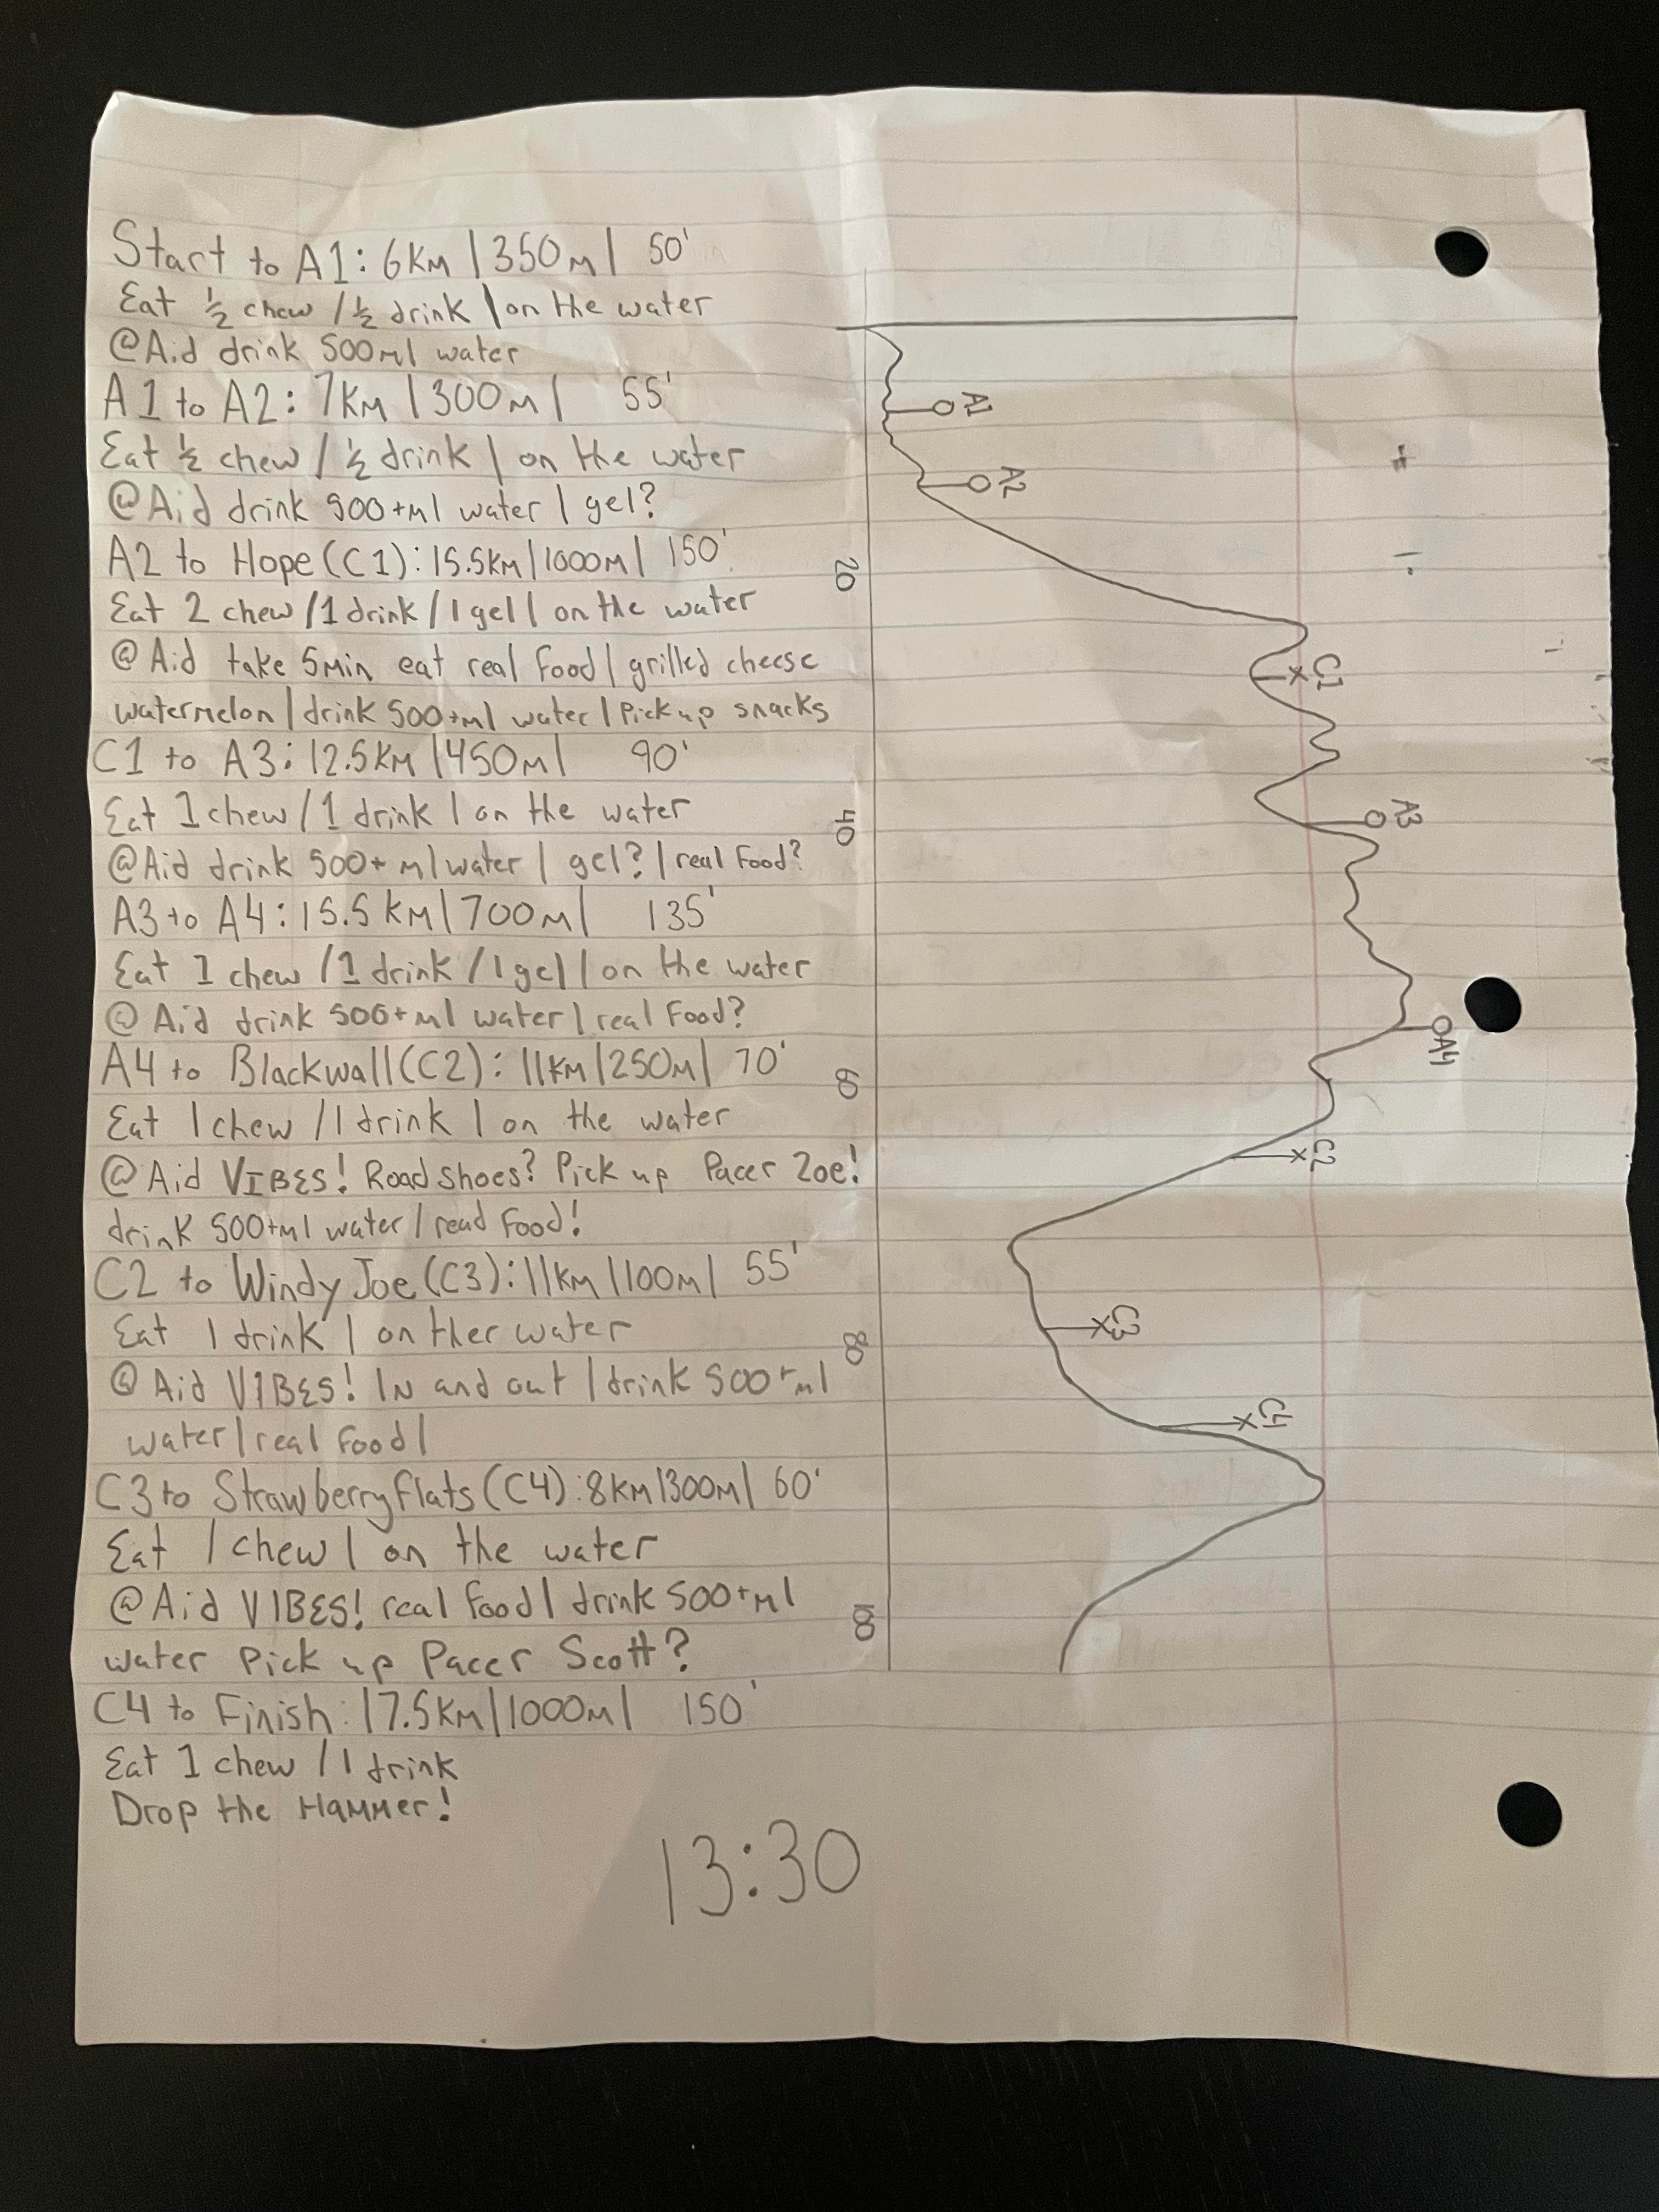 Start to A1: 6KM | 350M | 50'
Eat ½ chew / ½ drink | on the water
@Aid drink 500ml water
A1 to A2: 7KM | 300M | 55'
Eat ½ chew / ½ drink | on the water
@Aid drink 500+ml water | gel?
A2 to Hope (C1): 15.5KM | 1000M | 150'
Eat 2 chew / 1 drink / 1 gel | on the water
@ Aid take 5Min eat real food | grilled cheese
watermelon | drink 500+ml water | Pick up snacks
C1 to A3: 12.5KM | 450M | 90'
Eat 1 chew / 1 drink | on the water
@Aid drink 500+ ml water | gel? | real food?
A3 to A4: 15.5KM | 700M | 135'
Eat 1 chew / 1 drink / 1 gel | on the water
@ Aid drink 500+ml water | real food?
A4 to Blackwall (C2): 11KM | 250M | 70'
Eat 1 chew / 1 drink | on the water
@ Aid VIBES! Road shoes? Pick up Pacer Zoe!
drink 500+ml water / read food!
C2 to Windy Joe (C3): 11KM | 100M | 55'
Eat 1 drink | on ther water
@ Aid VIBES! IN and out | drink 500+ml
water | real food |
C3 to Strawberry flats (C4): 8KM | 300M | 60'
Eat 1 chew | on the water
@ Aid VIBES! real food | drink 500+ml
water Pick up Pacer Scott?
C4 to Finish: 17.5KM | 1000M | 150'
Eat 1 chew / 1 drink
Drop the HaMMer!
13:30
A1
A2
C1
A3
A4
C2
C3
C4
20
40
60
80
100